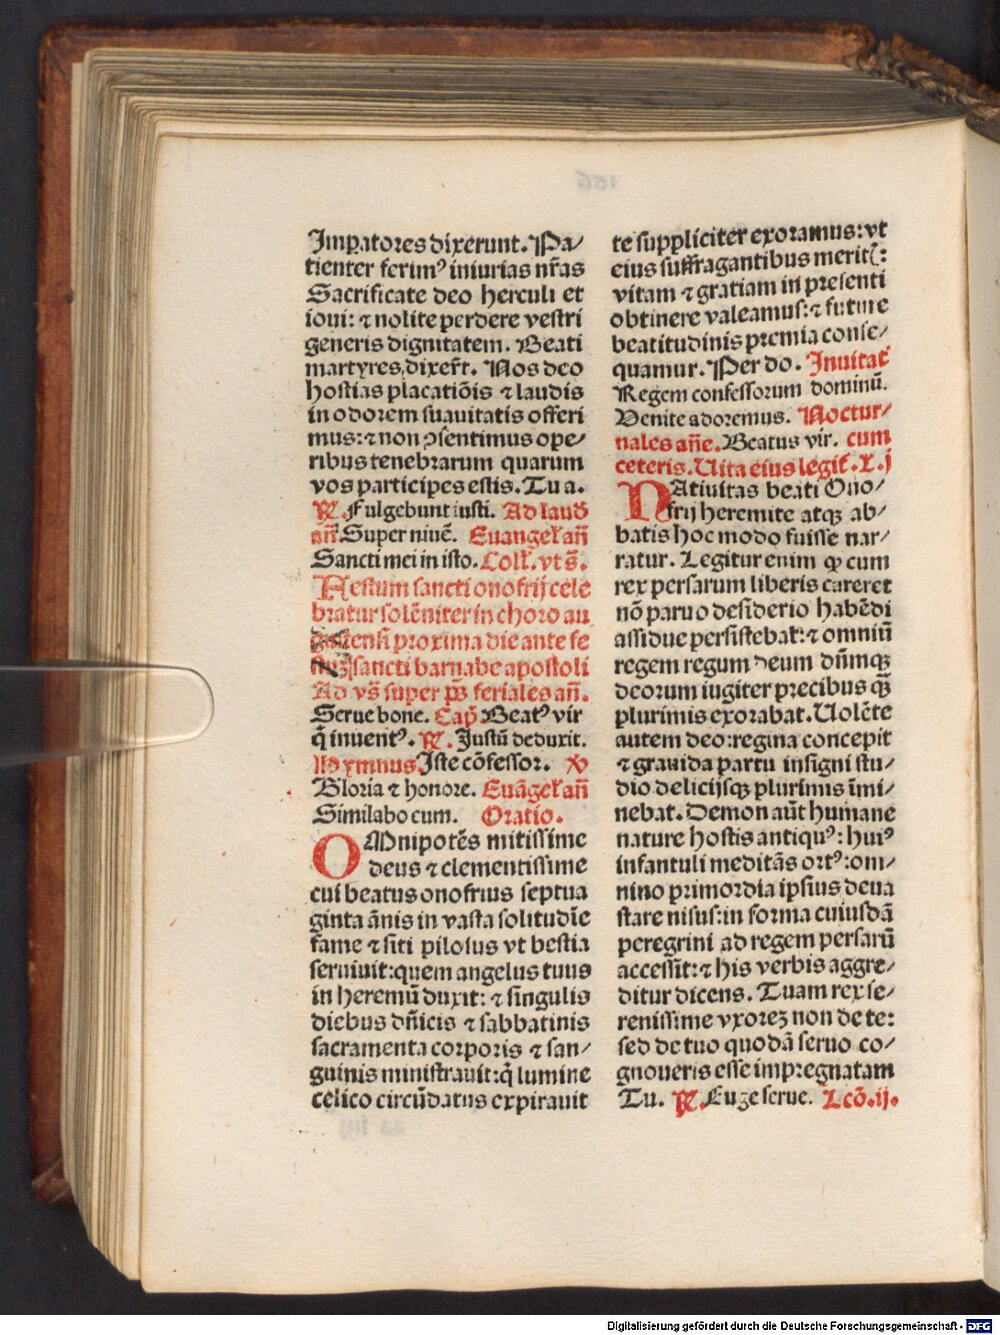 Imꝑatores dixerunt. Pa/
tienter ferimꝰ iniurias nr̄as
Sacrificate deo herculi et
ioui: ⁊ nolite perdere vestri
generis dignitatem. Beati
martyres dixer̄t. Nos deo
hostias placatiōis ⁊ laudis
in odorem suauitatis offeri
mus: ⁊ non ꝯsentimus ope/
ribus tenebrarum quarum
vos participes estis. Tu a.
℟. Fulgebunt iusti. Ad laud
an̄. Super niuē. Euangel̄ an̄
Sancti mei in isto. Coll̄. vt s̄.
Festum sancti onofrij cele
bratur solēniter in choro au
gustensi proxima die ante fe
sancti barnabe apostoli
Ad vs̄ super ps̄ feriales an̄.
Serue bone. Cap̄. Beatꝰ vir
q̄ inuentꝰ. ℟. Iustū deduxit.
Hymnus Iste cōfessor. ℣
Gloria ⁊ honore. Euāgel̄ an̄
Similabo eum. Oratio.
OMnipotēs mitissime
deus ⁊ clementissime
cui beatus onofrius septua
ginta ānis in vasta solitudīe
fame ⁊ siti pilosus vt bestia
seruiuit: quem angelus tuus
in heremū duxit: ⁊ singulis
diebus dn̄icis ⁊ sabbatinis
sacramenta corporis ⁊ san/
guinis ministrauit: q̄ lumine
celico circūdatus expirauit
te suppliciter exoramus: vt
eius suffragantibus meritꝭ:
vitam ⁊ gratiam in presenti
obtinere valeamus: ⁊ future
beatitudinis premia conse/
quamur. Per do. Inuitat̄
Regem confessorum dominū.
Venite adoremus. Noctur/
nales an̄e. Beatus vir. cum
ceteris. Uita eius legit̄. L. j
NAtiuitas beati Ono/
frij heremite atqꝫ ab/
batis hoc modo fuisse nar/
ratur. Legitur enim ꝙ cum
rex persarum liberis careret
nō paruo desiderio habēdi
assidue persistebat: ⁊ omniū
regem regum deum dn̄mqꝫ
deorum iugiter precibus qꝫ̄
plurimis exorabat. Uolēte
autem deo: regina concepit
⁊ grauida partu insigni stu/
dio delicijsqꝫ plurimis īmi/
nebat. Demon aūt humane
nature hostis antiquꝰ: huiꝰ
infantuli meditās ortꝰ: om/
nino primordia ipsius deua
stare nisus: in forma cuiusdā
peregrini ad regem persarū
accessit: ⁊ his verbis aggre/
ditur dicens. Tuam rex se/
renissime vxoreꝫ non de te:
sed de tuo quodā seruo co/
gnoueris esse impregnatam
Tu. ℟. Euge serue. Lcō. ij.
Digitalisierung gefördert durch die Deutsche Forschungsgemeinschaft - DFG